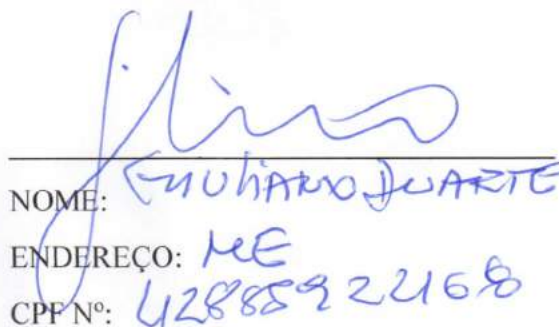 NOME: GIULIANO DUARTE
ENDEREÇO: ME
CPF Nº: 42885922168